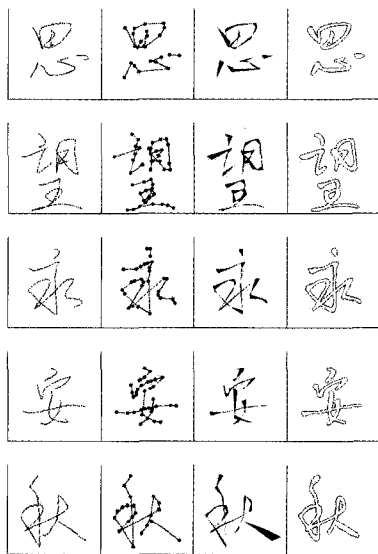 思 思 思 思
望 望 望 望
永 永 永 永
安 安 安 安
秋 秋 秋 秋